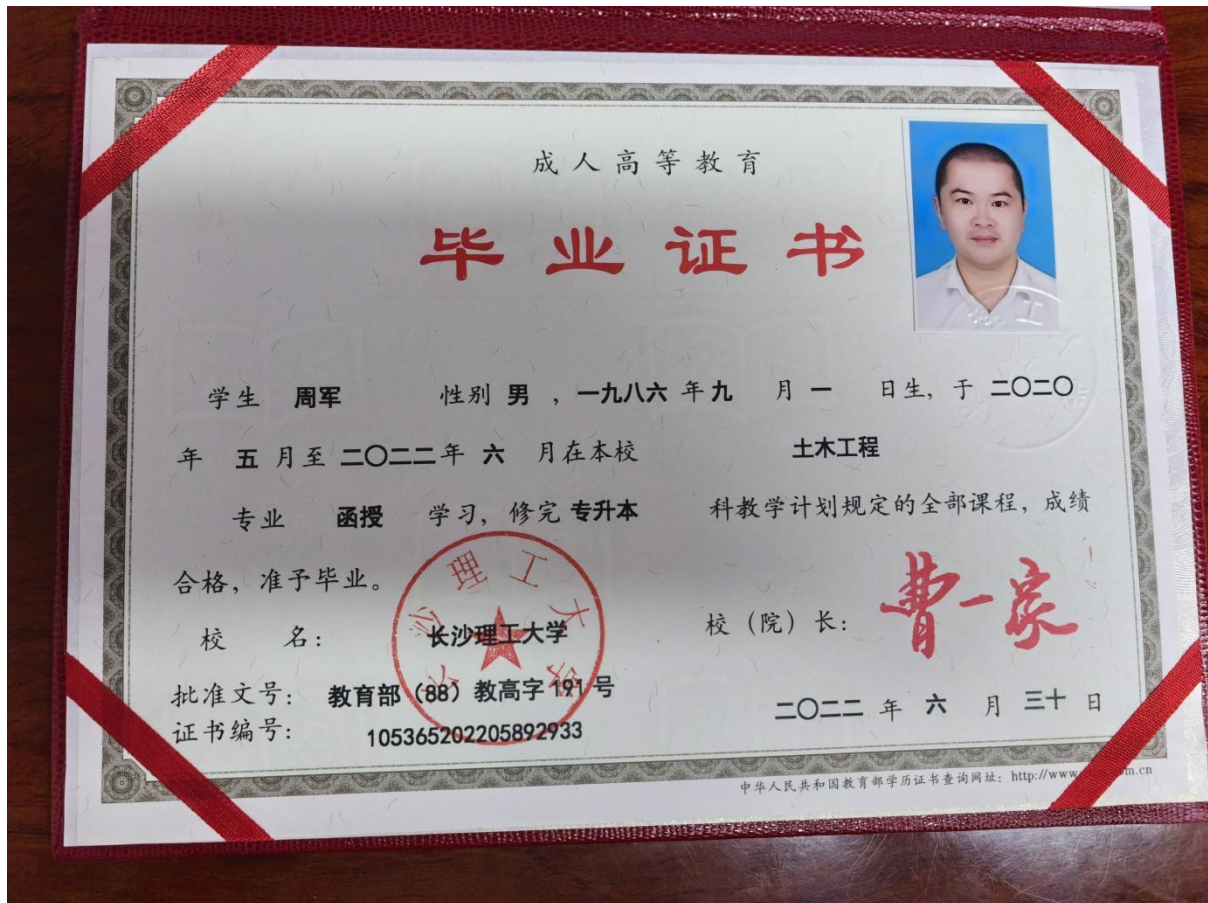 成人高等教育
毕业证书
学生 周军 性别 男 ，一九八六 年 九 月 一 日生，于 二〇二〇
年 五 月至 二〇二二 年 六 月在本校 土木工程
专业 函授 学习，修完 专升本 科教学计划规定的全部课程，成绩
合格，准予毕业。
校 名： 长沙理工大学
校（院）长： 曹一家
批准文号： 教育部（88）教高字 191 号
证书编号： 105365202205892933
二〇二二 年 六 月 三十 日
中华人民共和国教育部学历证书查询网址：http://www.
m.cn
长沙理工大学